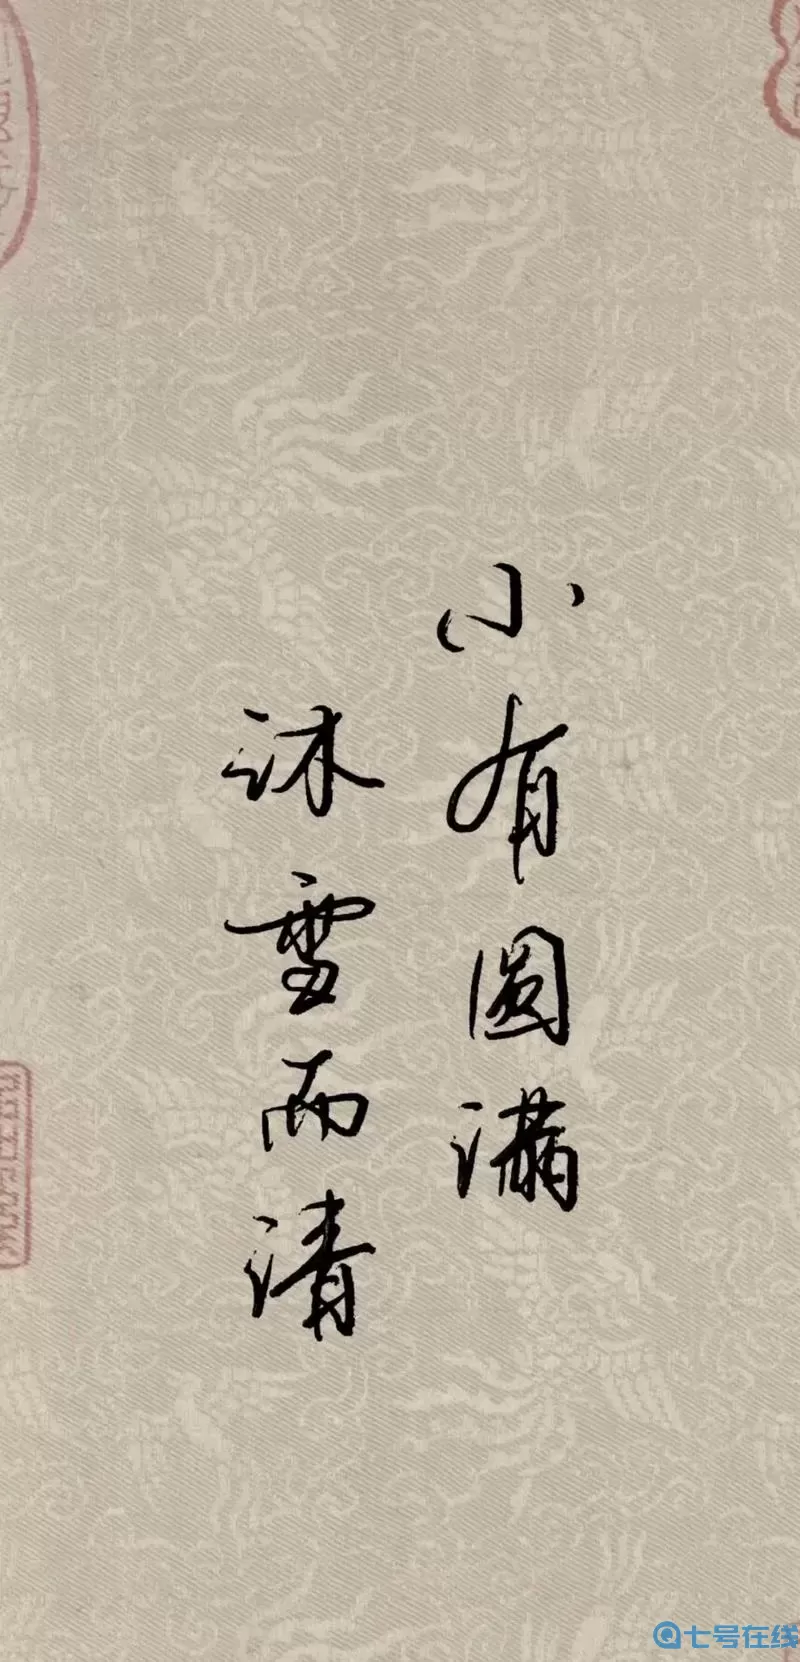 小有圆满
沐雪而清
七号在线